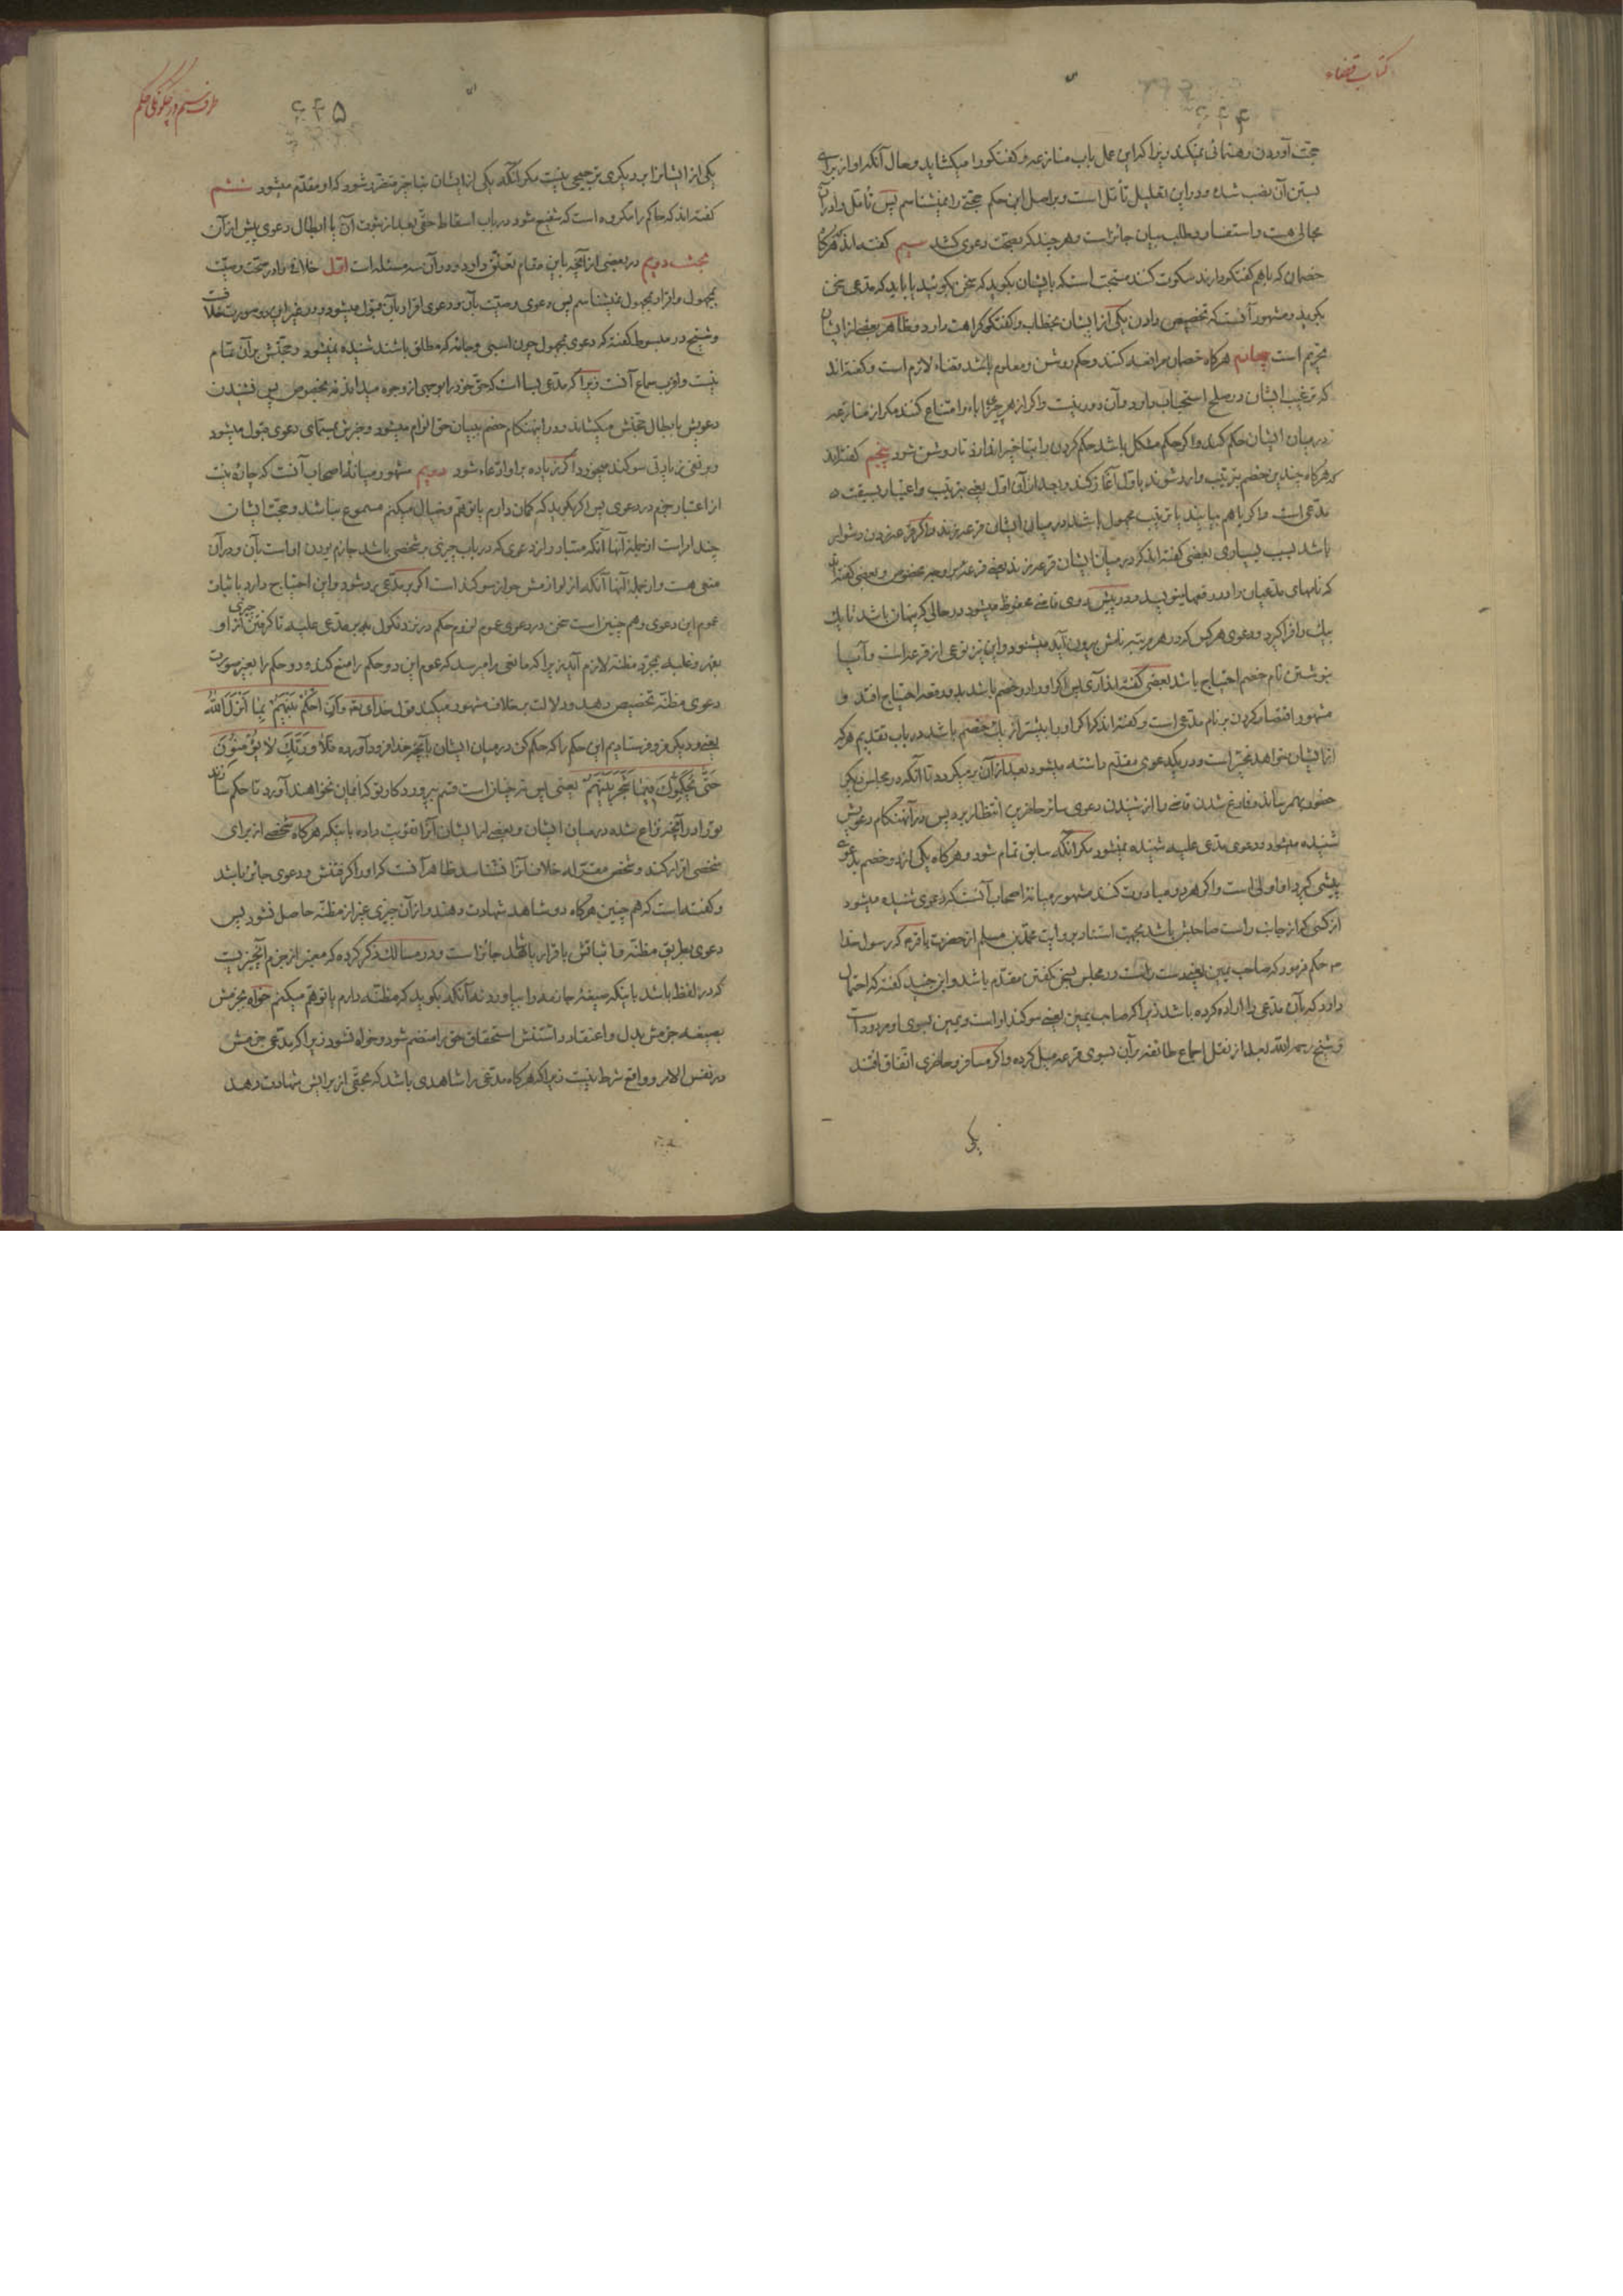 کتاب قضاء
۶۴۴
حجت آوردن رهنمائی نمیکند زیرا که این عمل باب منازعه و گفتگو را میکشاید و حال آنکه او از برای
بستن آن نصب شده و در این تعلیل تأمّل است و بر اصل این حکم حجتی را نمیشناسم پس تأمل را در آن
مجالی هست و استفسار و طلب بیان جائز است و هر چند که بصحت دعوی کشد سیم گفته اند هرکاه
خصمان که باهم گفتگو دارند سکوت کنند مستحبّ است که بایشان بگوید که سخن بگوئید یا باید که مدعی سخن
بگوید و مشهور آنست که تخصیص دادن یکی از ایشان بخطاب و گفتگو کراهت دارد و ظاهر بعضی از ایشان
تحریم است چهارم هرکاه خصمان مرافعه کنند و حکم روشن و معلوم باشد قضاء لازم است و گفته‌اند
که ترغیب ایشان در صلح استحباب دارد و آن دور نیست و اگر از هر چیزی اباء و امتناع کنند مگر از منازعه
در میان ایشان حکم کند و اگر حکم مشکل باشد حکم کردن را بتأخیر اندازد تا روشن شود پنجم گفته‌اند
که هرکاه چندین خصم بترتیب وارد شوند باوّل آغاز کند و بعد از آن اوّل یعنی بترتیب و اعتبار بسبقت
مدّعی است و اگر باهم بیایند یا ترتیب مجهول باشد در میان ایشان قرعه بزند و اگر قرعه زدن دشوار
باشد بسبب بسیاری بعضی گفته‌اند که در میان ایشان قرعه بزند یعنی قرعه بر وجه مخصوص و بعضی گفته‌اند
که نامهای مدعیان را در رقعها بنویسد و در پیش روی قاضی محفوظ میشود در حالی که پنهان باشد تا یک
بیک را فرا گیرد و دعوی هر کس که در هر مرتبه نامش بیرون آید میشنود و این نیز نوعی از قرعه است و آیا
بنوشتن نام خصم احتیاج باشد بعضی گفته‌اند آری پس اگر او را دو خصم باشد بدو رقعه احتیاج افتد و
مشهور اقتصار کردن بر نام مدّعی است و گفته‌اند که اگر او را بیشتر از یک خصم باشد در باب تقدیم هر که
از ایشان خواهد مخیّر است و در یک دعوی مقدّم داشته میشود بعد از آن برمیگردد تا آنکه در مجلس دیگر
حضور بهم رساند و فارغ شدن قاضی را از شنیدن دعوی سائر حاضرین انتظار برد پس در آنهنگام دعویش
شنیده میشود و دعوی مدعی علیه شنیده نمیشود مگر آنکه سابق تمام شود و هرکاه یکی از دو خصم بدعوی
پیشی گیرد او اولی است و اگر هر دو مبادرت کنند مشهور میانۀ اصحاب آنست که دعوی شنیده میشود
از کسی که از جانب راست صاحبش باشد بجهت استناد بروایت محمّد بن مسلم از حضرت باقر ع که رسول خدا
ص حکم فرمود که صاحب یمین یعنی دست راست در مجلس بسخن گفتن مقدّم باشد و ابن جنید گفته که احتمال
دارد که بآن مدعی را اراده کرده باشد زیرا که صاحب یمین یعنی سوگند او است و یمین بسوی او مردود است
و شیخ رحمه الله بعد از نقل اجماع طائفه بر آن بسوی قرعه میل کرده و اگر مسافر و حاضری اتفاق افتد
یکی
طرف سیم در چگونگی حکم
۶۴۵
یکی از ایشانرا بر دیگری ترجیحی نیست مگر آنکه یکی از ایشان بتأخیر متضرّر شود که او مقدّم میشود ششم
گفته‌اند که حاکم را مکروه است که شفیع شود در باب اسقاط حقّی بعد از ثبوت آن یا ابطال دعوی پیش از آن
بحث دویم در بعضی از آنچه باین مقام تعلّق دارد و در آن سه مسئله است اوّل خلاف را در صحّت وصیّت
بمجهول و اقرار بمجهول نمیشناسم پس دعوی وصیّت بآن و دعوی اقرار بآن قبول میشود و در غیر این دو صورت خلافست
و شیخ در مبسوط گفته که دعوی مجهول چون اسبی و جامۀ که مطلق باشند شنیده نمیشود و حجّتش بر آن تمام
نیست و اقرب سماع آنست زیرا که مدّعی بسا است که حق خود را بوجهی از وجوه میداند نه بخصوص پس نشنیدن
دعویش بابطال حقّش میکشاند و در اینهنگام خصم ببیان حق الزام میشود و خبرش بمسمّای دعوی قبول میشود
و بر نفی زیادتی سوگند میخورد اگر زیاده بر او ادّعاء شود دویم مشهور میانۀ اصحاب آنست که چاره نیست
از اعتبار جزم در دعوی پس اگر بگوید که گمان دارم یا توهّم و خیال میکنم مسموع نباشد و حجّت ایشان
چند امر است از جملۀ آنها آنکه متبادر از دعوی که در باب چیزی بر شخصی باشد جازم بودن او است بآن و بر آن
منعی هست و از جملۀ آنها آنکه از لوازمش جواز سوگند است اگر بر مدّعی رد شود و این احتیاج دارد باثبات
عموم این دعوی و هم چنین است سخن در دعوی عموم لزوم حکم در نزد نکول بلکه بر مدّعی علیه تا گرفتن چیزی از او
بقهر و غلبه بمجرّد مظنّه لازم آید زیرا که مانعی را میرسد که عموم این دو حکم را منع کند و دو حکم را بغیر صورت
دعوی مظنّه تخصیص دهد و دلالت بر خلاف مشهور میکند قول خدای تعه وَأَنِ احْكُمْ بَيْنَهُمْ بِمَا أَنْزَلَ اللَّهُ
یعنی و دیگر فرو فرستادیم این حکم را که حکم کن در میان ایشان بآنچه خدا فرود آورده فَلَا وَرَبِّكَ لَا يُؤْمِنُونَ
حَتَّى يُحَكِّمُوكَ فِيمَا شَجَرَ بَيْنَهُمْ یعنی پس نه چنان است قسم بپروردگار تو که ایمان نخواهند آورد تا حکم سازند
تو را در آنچه نزاع شده در میان ایشان و بعضی از ایشان آنرا تقویت داده باینکه هرکاه شخصی از برای
شخصی اقرار کند و شخص مقرّ له خلاف آنرا نشناسد ظاهر آنست که او را گرفتنش و دعوی جائز باشد
و گفته است که هم چنین هرکاه دو شاهد شهادت دهند و از آن چیزی غیر از مظنّه حاصل نشود پس
دعوی بطریق مظنّه و اثباتش باقرار یا شاهد جائز است و در مسالک ذکر کرده که معتبر از جزم آنچیزیست
که در لفظ باشد باینکه صیغۀ جازمه را بیاورد نه آنکه بگوید که مظنّه دارم یا توهّم میکنم خواه بجزمش
بصیغه جزمش بدل و اعتقاد داشتنش استحقاق حق را منضم شود و خواه نشود زیرا که مدّعی جزمش
در نفس الامر و واقع شرط نیست زیرا که هرکاه مدّعی را شاهدی باشد که بحقّی از برایش شهادت دهد